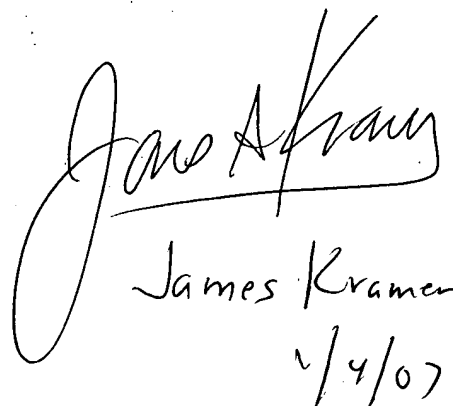 James A Kramer
James Kramer
1/4/07